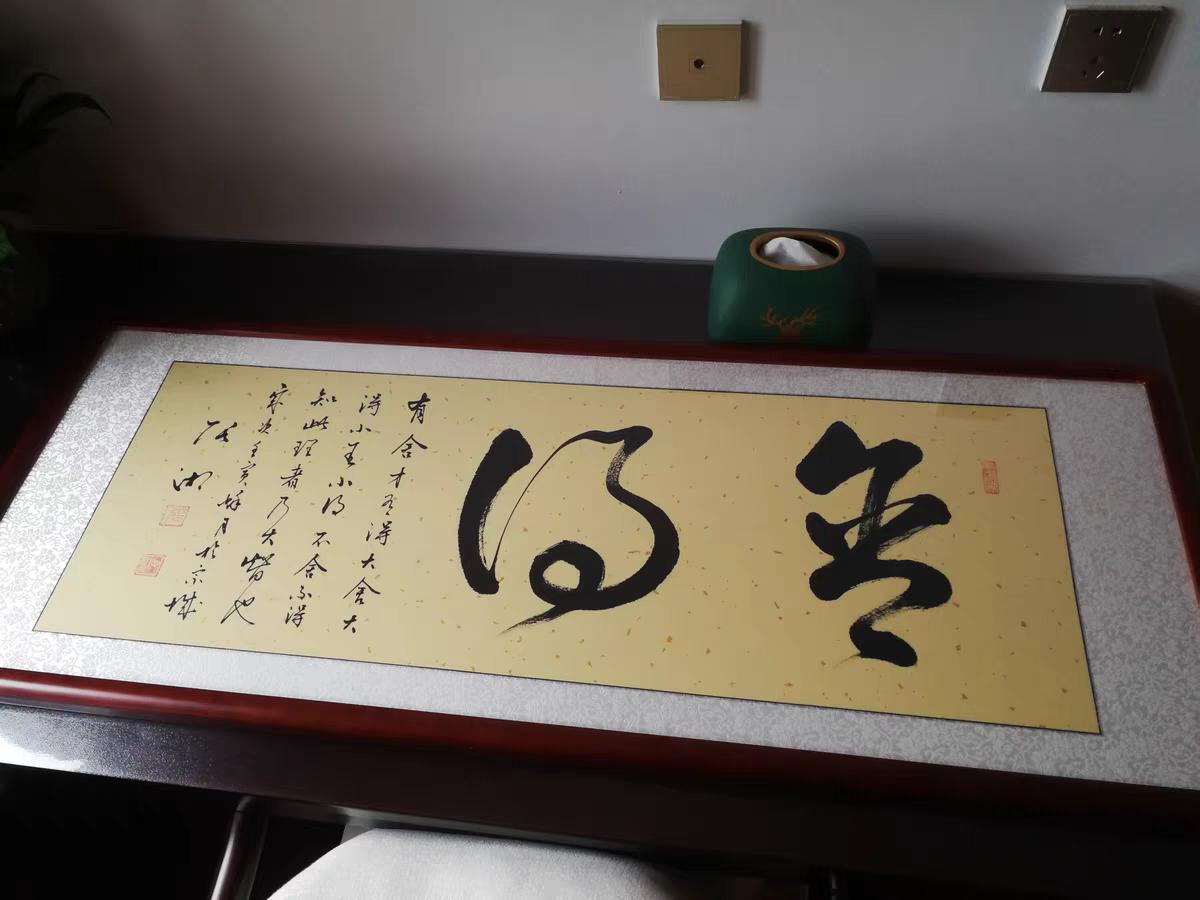 舍得
有舍才有得大舍大
得小舍小得不舍不得
知此理者乃大智也
岁次壬寅月於京城